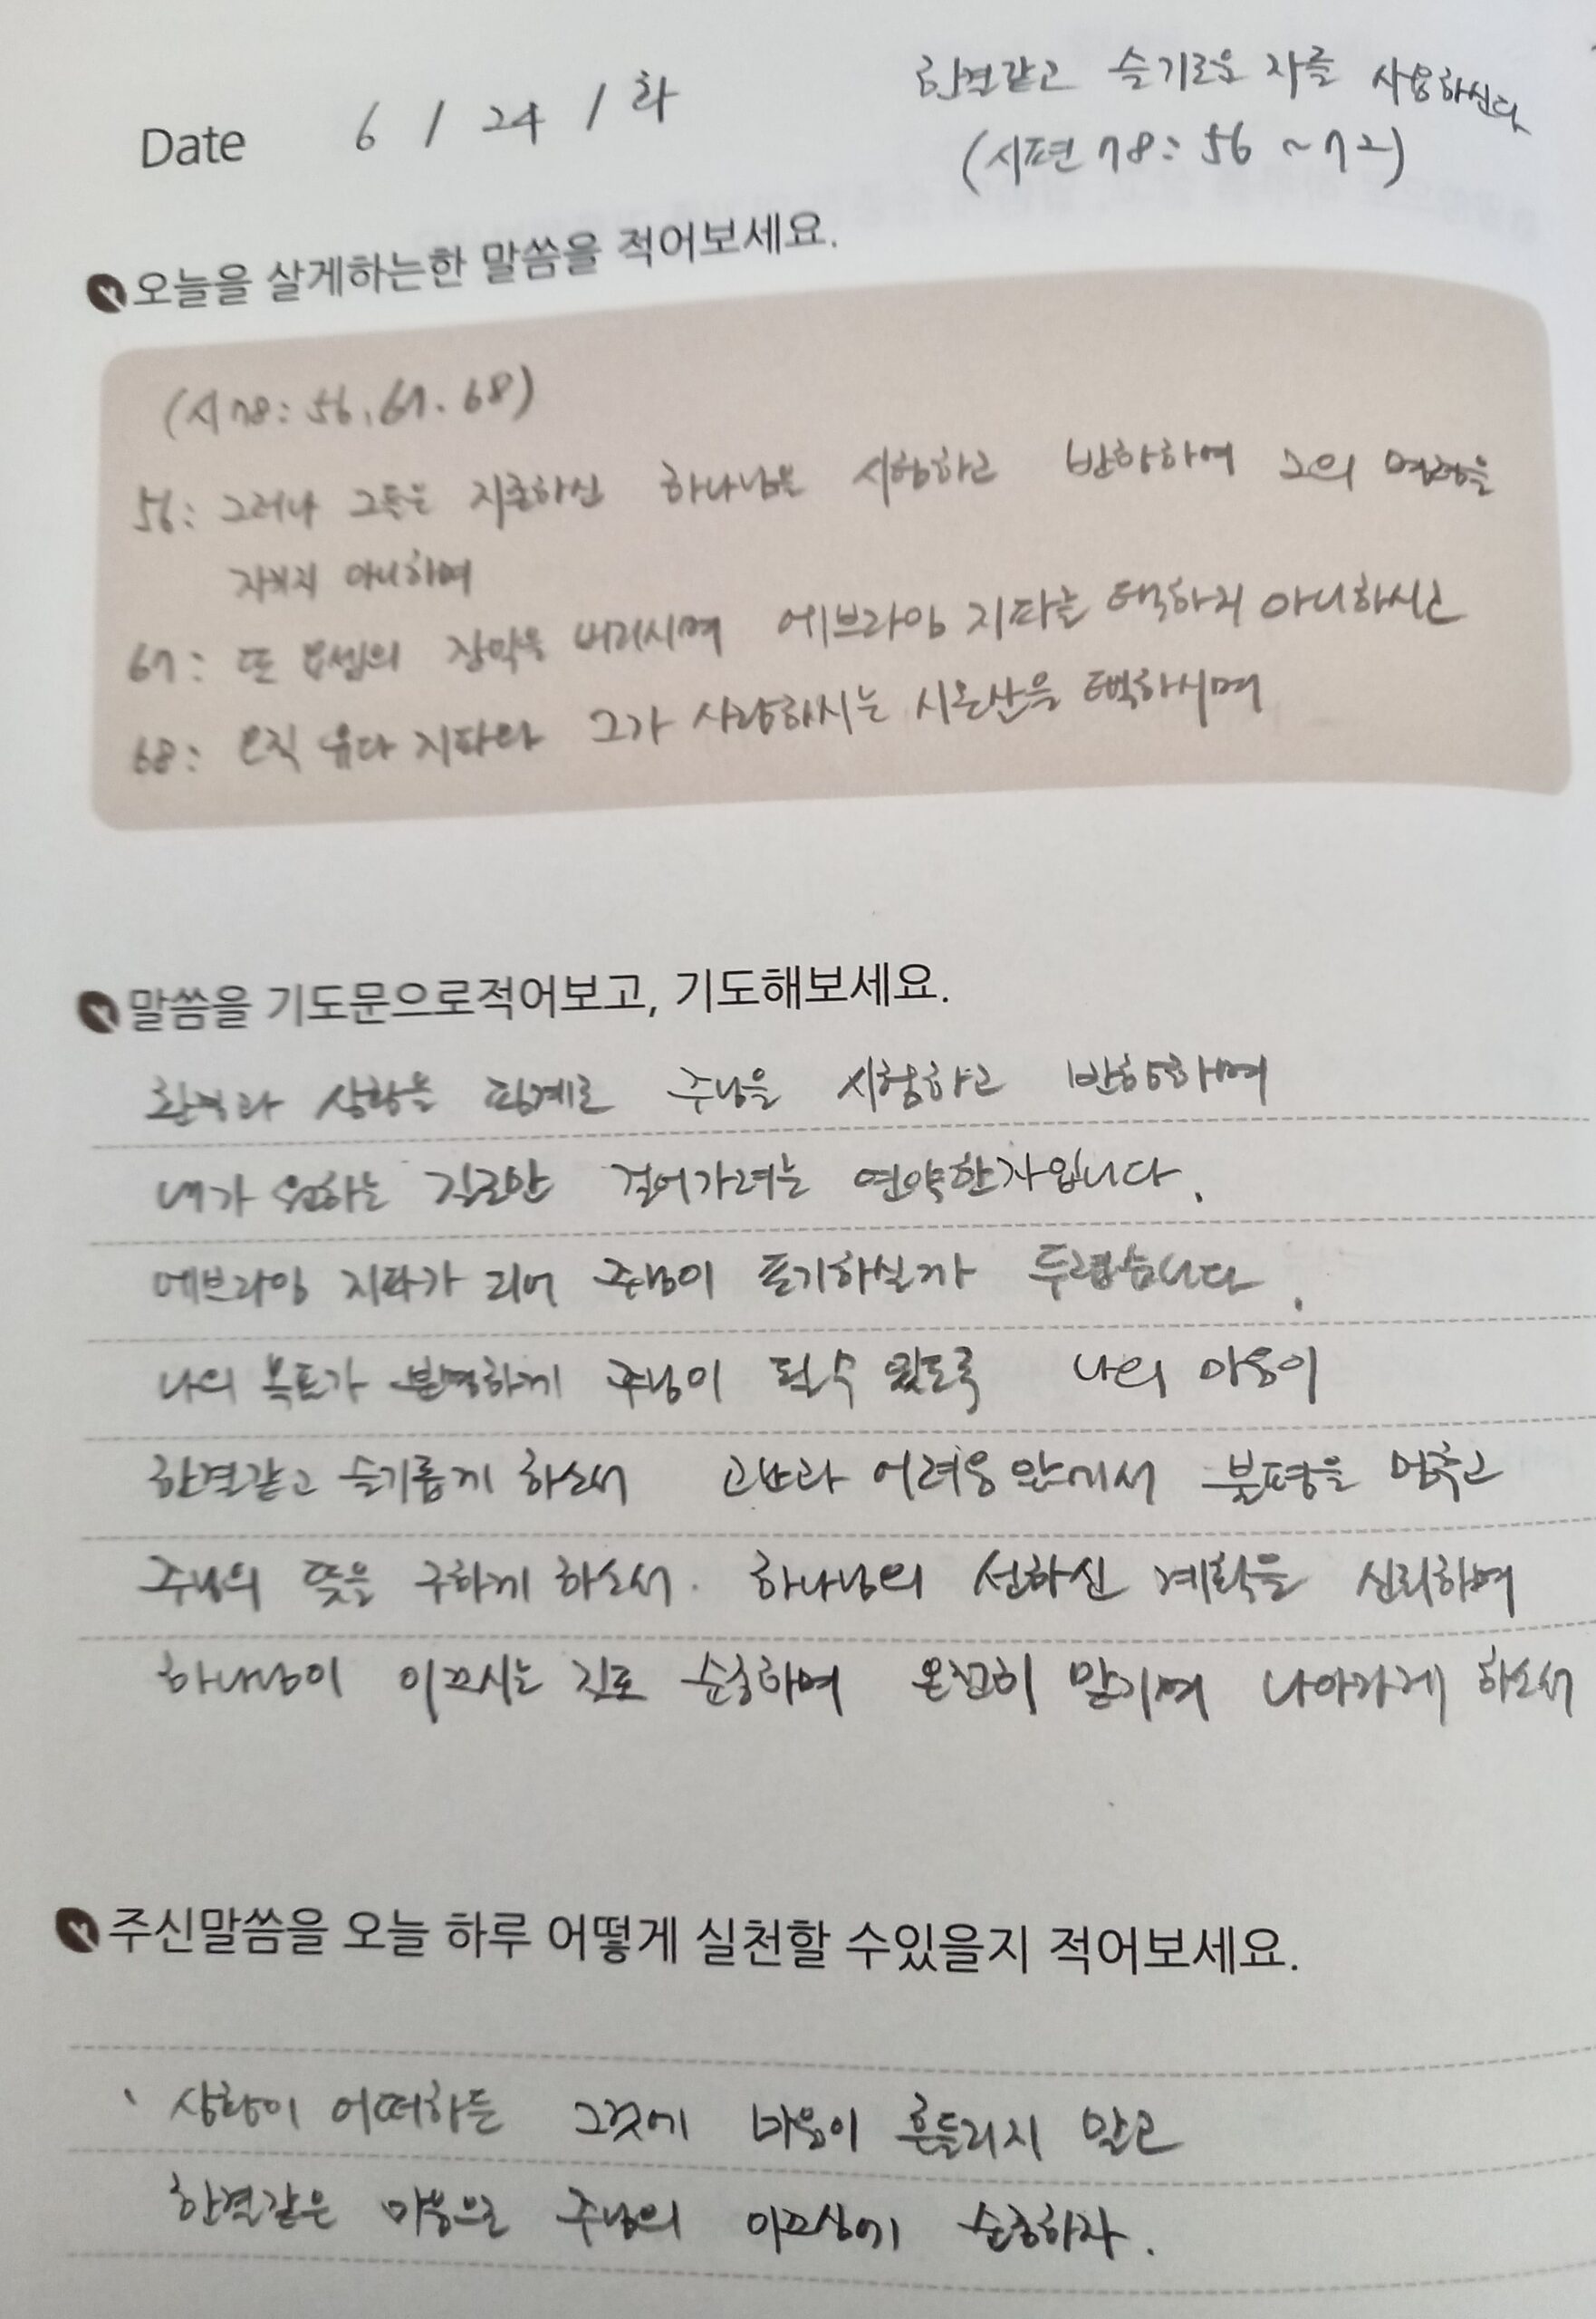 Date 6 / 24 / 화
한결같고 슬기로운 자를 사용하신다
(시편 78: 56 ~ 72)
오늘을 살게하는한 말씀을 적어보세요.
(시 78: 56, 67. 68)
56: 그러나 그들은 지존하신 하나님을 시험하고 반항하여 그의 명령을
지키지 아니하며
67: 또 요셉의 장막을 버리시며 에브라임 지파를 택하지 아니하시고
68: 오직 유다 지파와 그가 사랑하시는 시온산을 택하시며
말씀을 기도문으로적어보고, 기도해보세요.
환경과 상황을 핑계로 주님을 시험하고 반항하며
내가 원하는 길로만 걸어가려는 연약한자입니다.
에브라임 지파가 되어 주님이 포기하실까 두렵습니다.
나의 목표가 분명하게 주님이 될 수 있도록 나의 마음이
한결같고 슬기롭게 하소서 고난과 어려움 안에서 불평을 멈추고
주님의 뜻을 구하게 하소서. 하나님의 선하신 계획을 신뢰하며
하나님이 이끄시는 길로 순종하며 온전히 맡기며 나아가게 하소서
주신말씀을 오늘 하루 어떻게 실천할 수있을지 적어보세요.
상황이 어떠하든 그것에 마음이 흔들리지 말고
한결같은 마음으로 주님의 이끄심에 순종하자.